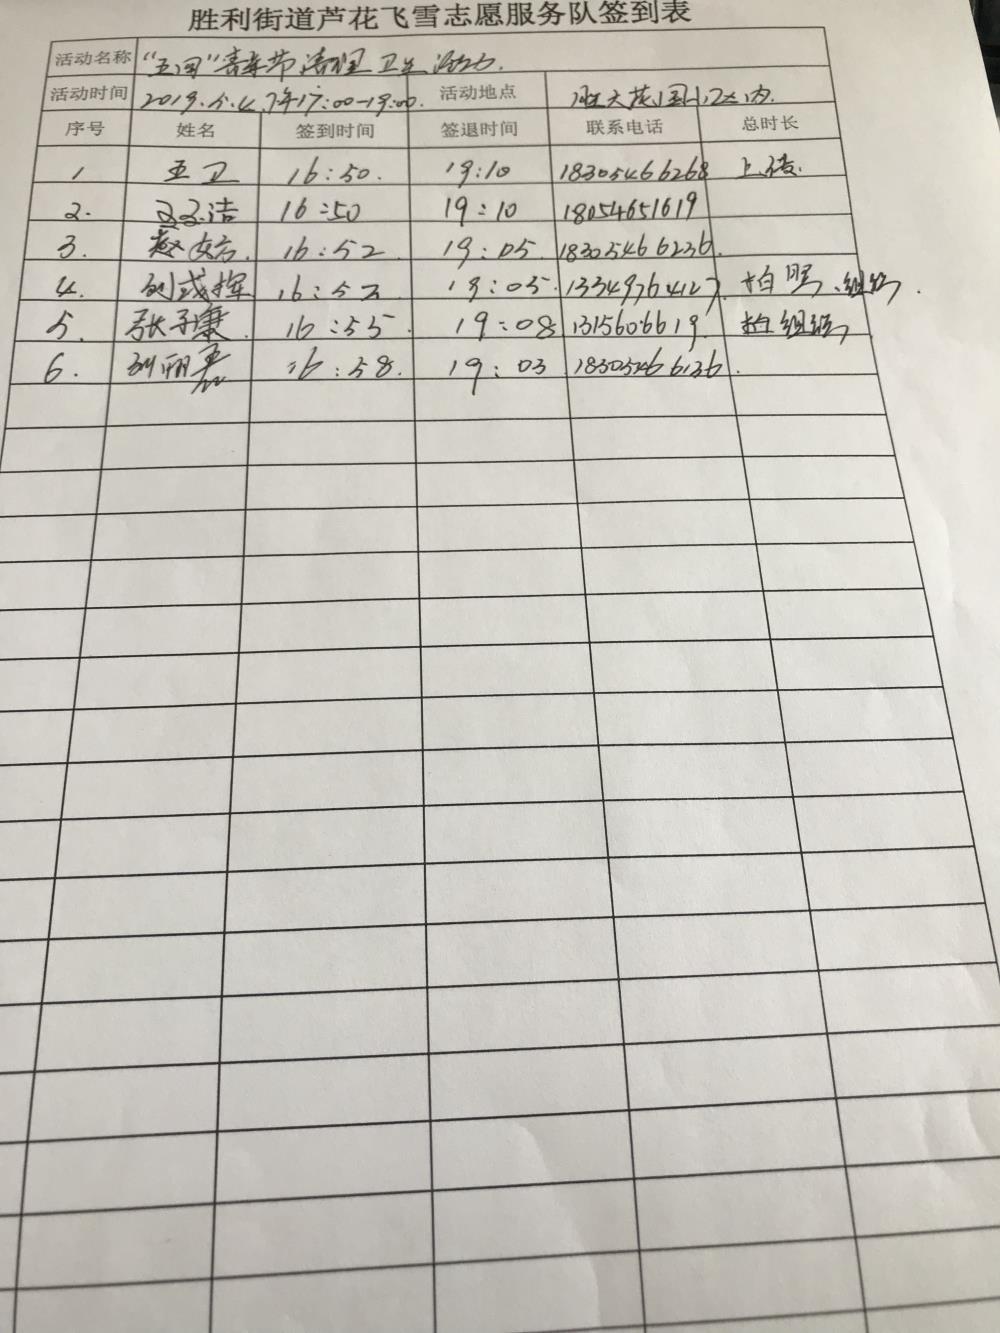 胜利街道芦花飞雪志愿服务队签到表
活动名称 “五四”青年节清理卫生活动.
活动时间 2019.5.4.下午17:00-19:00. 活动地点 胜大花园小区内.
序号 姓名 签到时间 签退时间 联系电话 总时长
1 王卫 16:50. 19:10 18305466268 上传.
2. 洁 16:50 19:10 18054651619
3. 赵 16:52 19:05. 18305466236.
4. 刘成挥 16:52 19:05. 13349764127. 拍照、组织.
5. 张子康. 16:55 19:08 13156066619 组织
6. 刘丽 16:58. 19:03 18305466136.